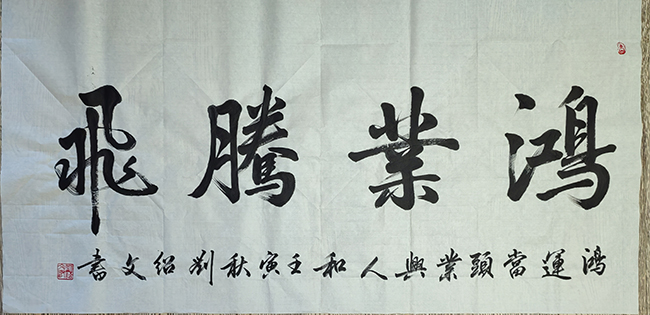 鴻業騰飛
鴻運當頭業興人和壬寅秋劉紹文書